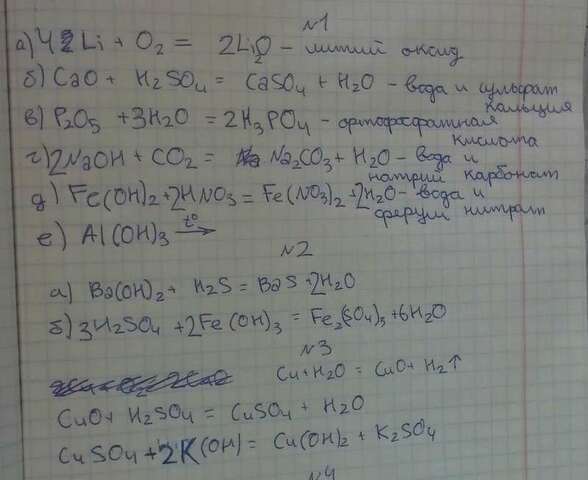 №1
а) 4Li + O₂ = 2Li₂O - литий оксид
б) CaO + H₂SO₄ = CaSO₄ + H₂O - вода и сульфат
кальция
в) P₂O₅ + 3H₂O = 2H₃PO₄ - ортофосфатная
кислота
г) 2NaOH + CO₂ = Na₂CO₃ + H₂O - вода и
натрий карбонат
д) Fe(OH)₂ + 2HNO₃ = Fe(NO₃)₂ + 2H₂O - вода и
ферум нитрат
е) Al(OH)₃ t° →
№2
а) Ba(OH)₂ + H₂S = BaS + 2H₂O
б) 3H₂SO₄ + 2Fe(OH)₃ = Fe₂(SO₄)₃ + 6H₂O
№3
Cu + H₂O = CuO + H₂↑
CuO + H₂SO₄ = CuSO₄ + H₂O
CuSO₄ + 2K(OH) = Cu(OH)₂ + K₂SO₄
№4